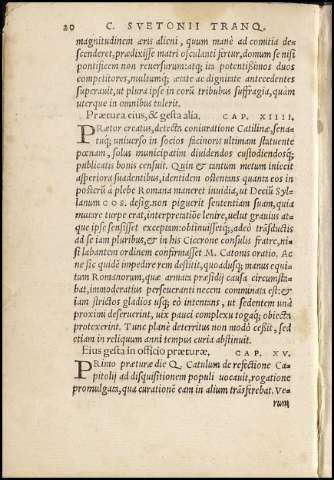 20 C. SVETONII TRANQ.
magnitudinem æris alieni, quum manè ad comitia de-
scenderet, prædixisse matri osculanti fertur, domum se nisi
pontificem non reuersurum: atq; in potentißimos duos
competitores, multumq; ætate ac dignitate antecedentes
superauit, ut plura ipse in eorũ tribubus suffragia, quàm
uterque in omnibus tulerit.
Prætura eius, & gesta alia. CAP. XIIII.
PRætor creatus, detecta coniuratione Catilinæ, sena-
tuq; uniuerso in socios facinoris ultimam statuente
pœnam, solus municipatim diuidendos custodiendosq;
publicatis bonis censuit. Quin & tantum metum iniecit
asperiora suadentibus, identidem ostentans quanta eos in
posterũ à plebe Romana maneret inuidia, ut Deciũ Syl-
lanum COS. desig. non piguerit sententiam suam, quia
mutare turpe erat, interpretatiõe lenire, uelut grauius atq;
que ipse sensisset exceptam: obtinuissetq;, adeò trãsductis
ad se iam pluribus, & in his Cicerone consulis fratre, ni-
si labantem ordinem confirmasset M. Catonis oratio. Ac
ne sic quidẽ impedire rem destitit, quoadusq; manus equi-
tum Romanorum, quæ armata præsidij causa circumsta-
bat, immoderatius perseueranti necem comminata est: &
iam strictos gladios usq; eò intentans, ut sedentem unà
proximi deseruerint, uix pauci complexu togaq; obiecta
protexerint. Tunc planè deterritus non modò ceßit, sed
etiam in reliquum anni tempus curia abstinuit.
Eius gesta in officio præturæ. CAP. XV.
PRimo præturæ die Q. Catulum de refectione Ca-
pitolij ad disquisitionem populi uocauit, rogatione
promulgata, qua curationẽ eam in alium trãsferebat. Ve-
rum